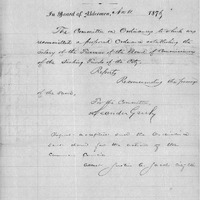 In Board of Aldermen, Nov 11 1875
The Committee on Ordinances to which was
recommitted a proposed Ordinance establishing the
salary of the Treasurer of the Board of Commissioners
of the Sinking Funds of the City,
Report
Recommending the passage
of the same.
For the Committee,
Leander Greely
Report accepted and the Ordinance
sent down for the action of the
Common Council